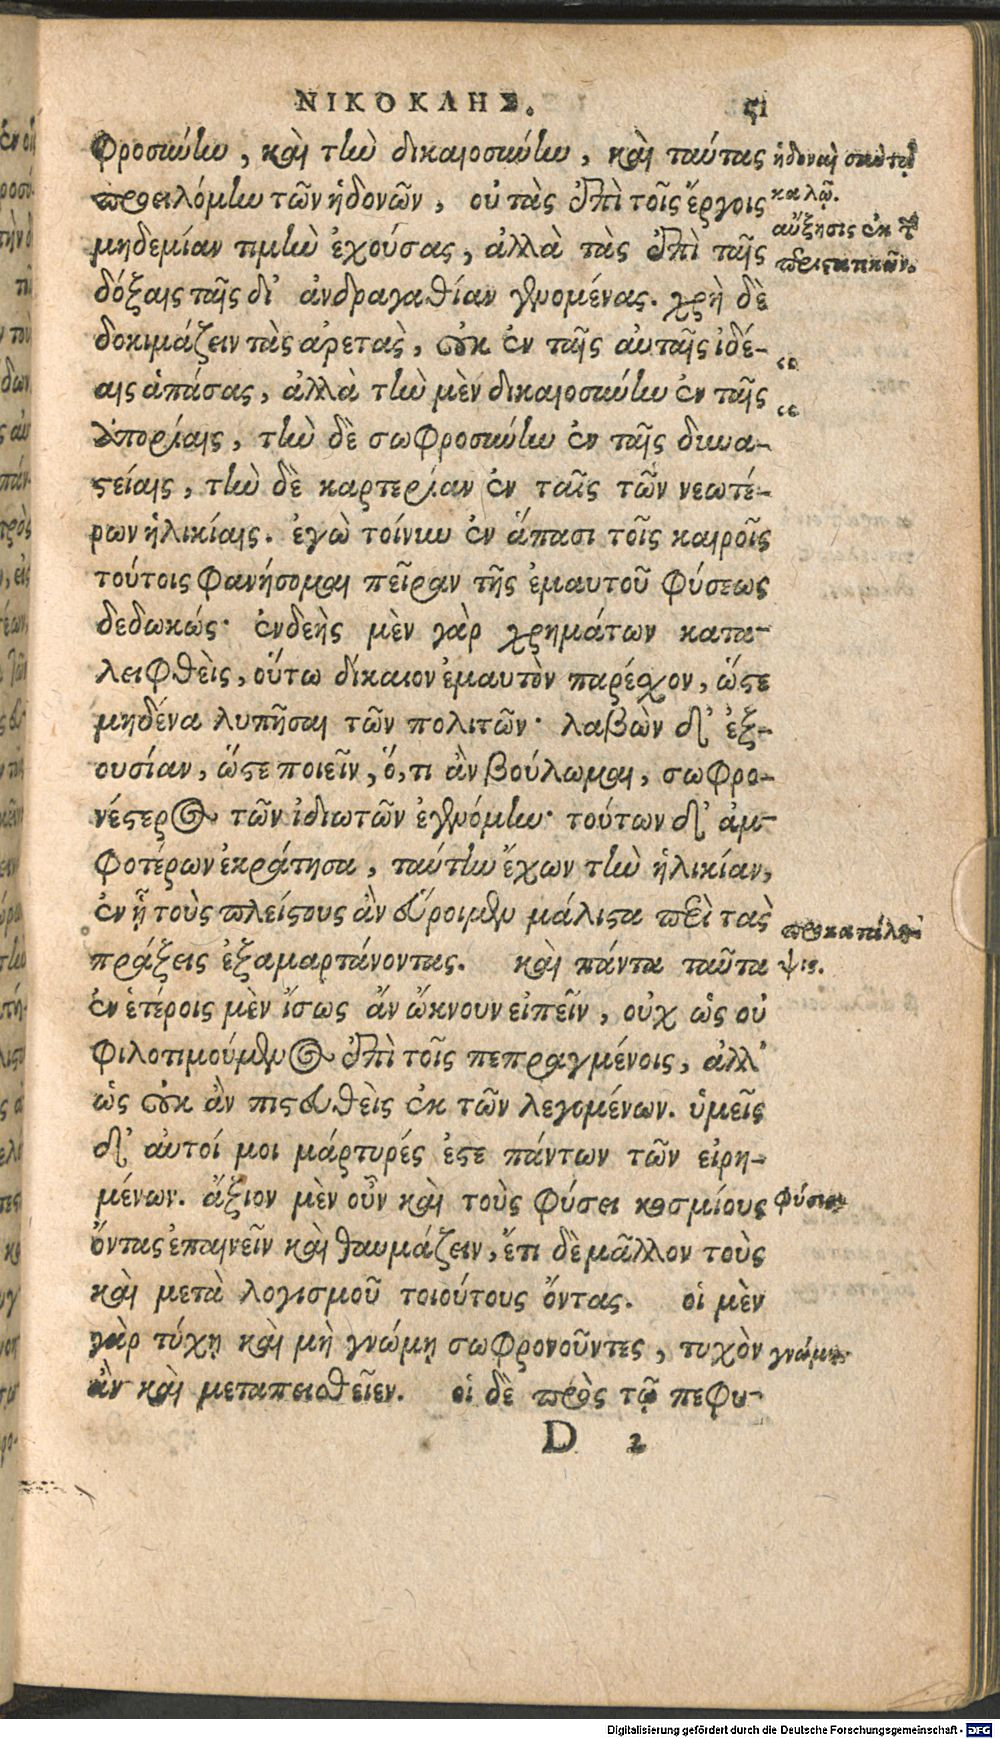 ΝΙΚΟΚΛΗΣ. 51
φροσύνην, καὶ τὴν δικαιοσύνην, καὶ ταύτας
προειλόμην τῶν ἡδονῶν, οὐ τὰς ἐπὶ τοῖς ἔργοις
μηδεμίαν τιμὴν ἐχούσας, ἀλλὰ τὰς ἐπὶ ταῖς
δόξαις ταῖς δι' ἀνδραγαθίαν γενομένας. χρὴ δὲ
δοκιμάζειν τὰς ἀρετὰς, οὐκ ἐν ταῖς αὐταῖς ἰδέ-
αις ἁπάσας, ἀλλὰ τὴν μὲν δικαιοσύνην ἐν ταῖς
ἀπορίαις, τὴν δὲ σωφροσύνην ἐν ταῖς δυνα-
στείαις, τὴν δὲ καρτερίαν ἐν ταῖς τῶν νεωτέ-
ρων ἡλικίαις. ἐγὼ τοίνυν ἐν ἅπασι τοῖς καιροῖς
τούτοις φανήσομαι πεῖραν τῆς ἐμαυτοῦ φύσεως
δεδωκώς· ἐνδεὴς μὲν γὰρ χρημάτων κατα-
λειφθεὶς, οὕτω δίκαιον ἐμαυτὸν παρέχον, ὥστε
μηδένα λυπῆσαι τῶν πολιτῶν· λαβὼν δ' ἐξ-
ουσίαν, ὥστε ποιεῖν, ὅ,τι ἂν βούλωμαι, σωφρο-
νέστερος τῶν ἰδιωτῶν ἐγενόμην· τούτων δ' ἀμ-
φοτέρων ἐκράτησα, ταύτην ἔχων τὴν ἡλικίαν,
ἐν ᾗ τοὺς πλείστους ἂν εὕροιμεν μάλιστα περὶ τὰς
πράξεις ἐξαμαρτάνοντας. καὶ πάντα ταῦτα
ἐν ἑτέροις μὲν ἴσως ἂν ὤκνουν εἰπεῖν, οὐχ ὡς οὐ
φιλοτιμούμενος ἐπὶ τοῖς πεπραγμένοις, ἀλλ'
ὡς οὐκ ἂν πιστευθεὶς ἐκ τῶν λεγομένων. ὑμεῖς
δ' αὐτοί μοι μάρτυρές ἐστε πάντων τῶν εἰρη-
μένων. ἄξιον μὲν οὖν καὶ τοὺς φύσει κοσμίους
ὄντας ἐπαινεῖν καὶ θαυμάζειν, ἔτι δὲ μᾶλλον τοὺς
καὶ μετὰ λογισμοῦ τοιούτους ὄντας. οἱ μὲν
γὰρ τύχῃ καὶ μὴ γνώμῃ σωφρονοῦντες, τυχὸν
ἂν καὶ μεταπεισθεῖεν. οἱ δὲ πρὸς τῷ πεφυ-
D 2
ἡδοναὶ
καλῷ.
αὔξησις ἐκ
προκατάλη
ψις.
φύσις
γνώμη
Digitalisierung gefördert durch die Deutsche Forschungsgemeinschaft - DFG